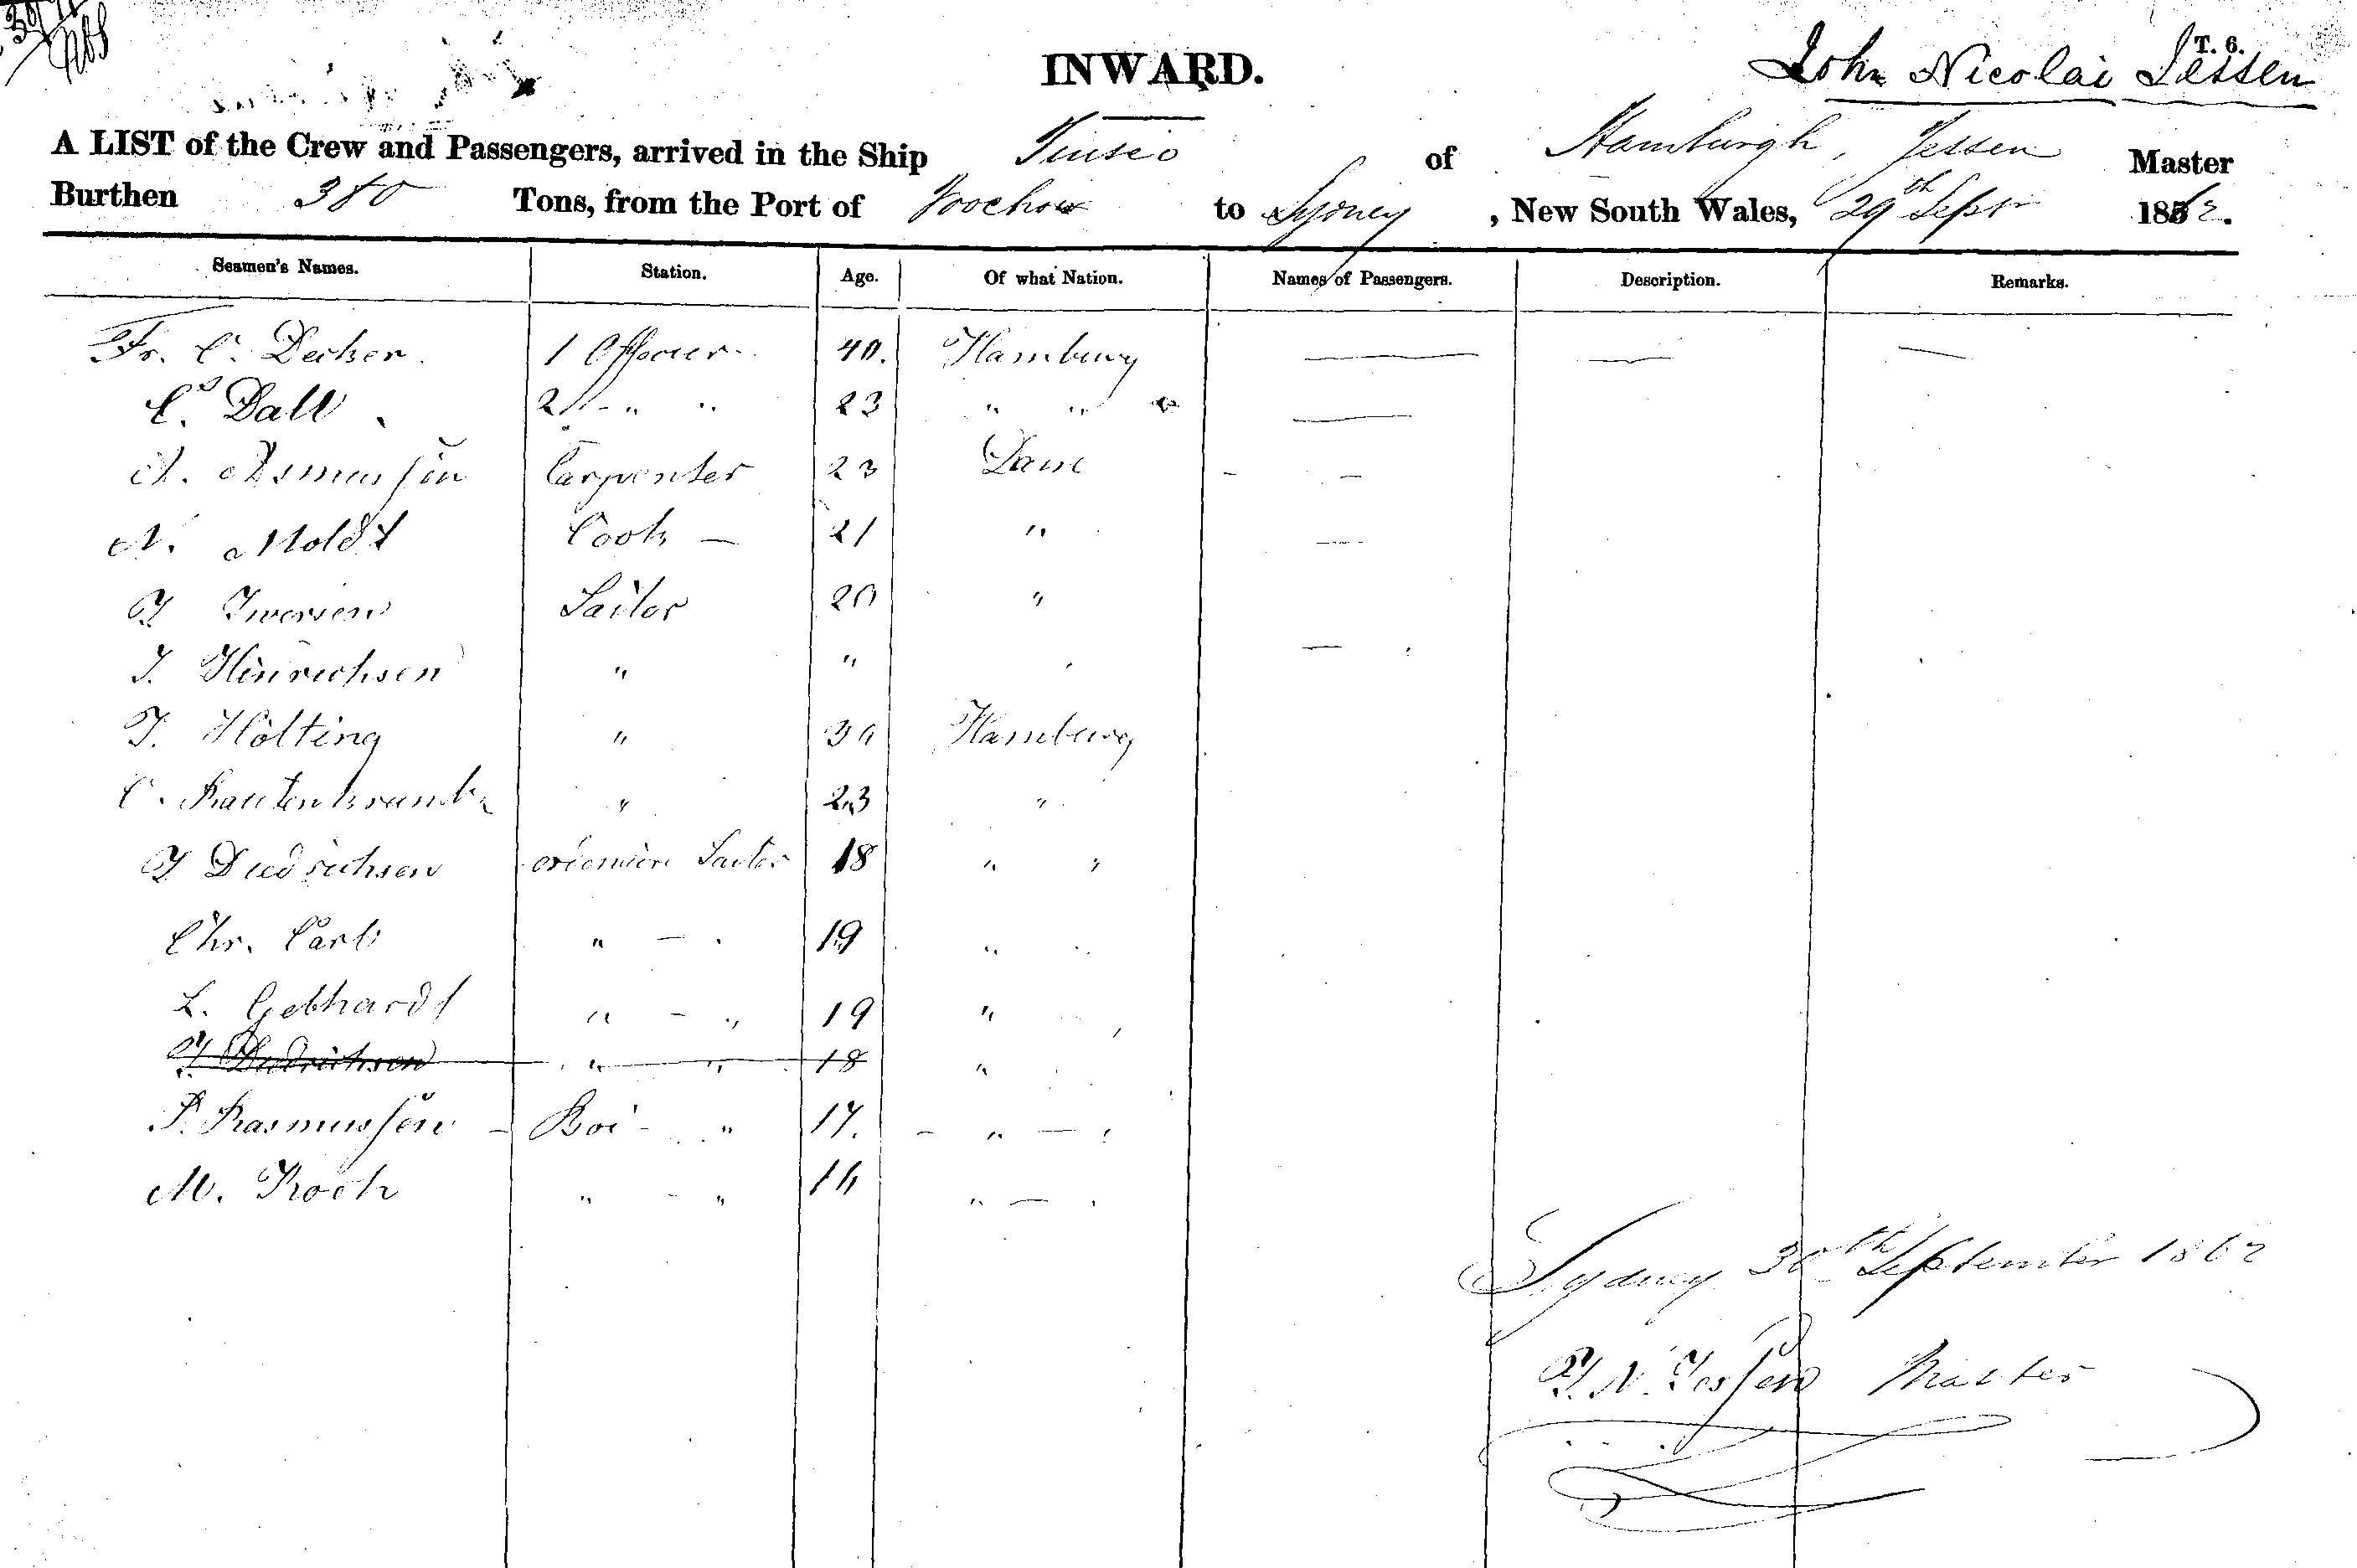 INWARD.
T. 6.
John Nicolai Jessen
A LIST of the Crew and Passengers, arrived in the Ship of Hamburgh, Jessen Master
Burthen 380 Tons, from the Port of Foochow to Sydney, New South Wales, 29th Septr 1862.
Seamen's Names. Station. Age. Of what Nation. Names of Passengers. Description. Remarks.
Fr. C. Decker. 1 Officer 40. Hamburg
C. Dall 2 " " 23 " "
A. Asmussen Carpenter 23 Dane
N. Moldt Cook — 21 "
J Iwersen Sailor 20 "
J. Hinrichsen " "
J. Hölting " Hamburg
C. " 23 "
J Diedrichsen Sailor 18 " "
Chr. Carl " — 19 "
L. Gebhardt " — " 19 "
J. Diedrichsen " " 18 "
P. Rasmussen — Boi — " 17. — " —
M. Koch " — " " —
Sydney 30th September 1862
J. N. Jessen Master